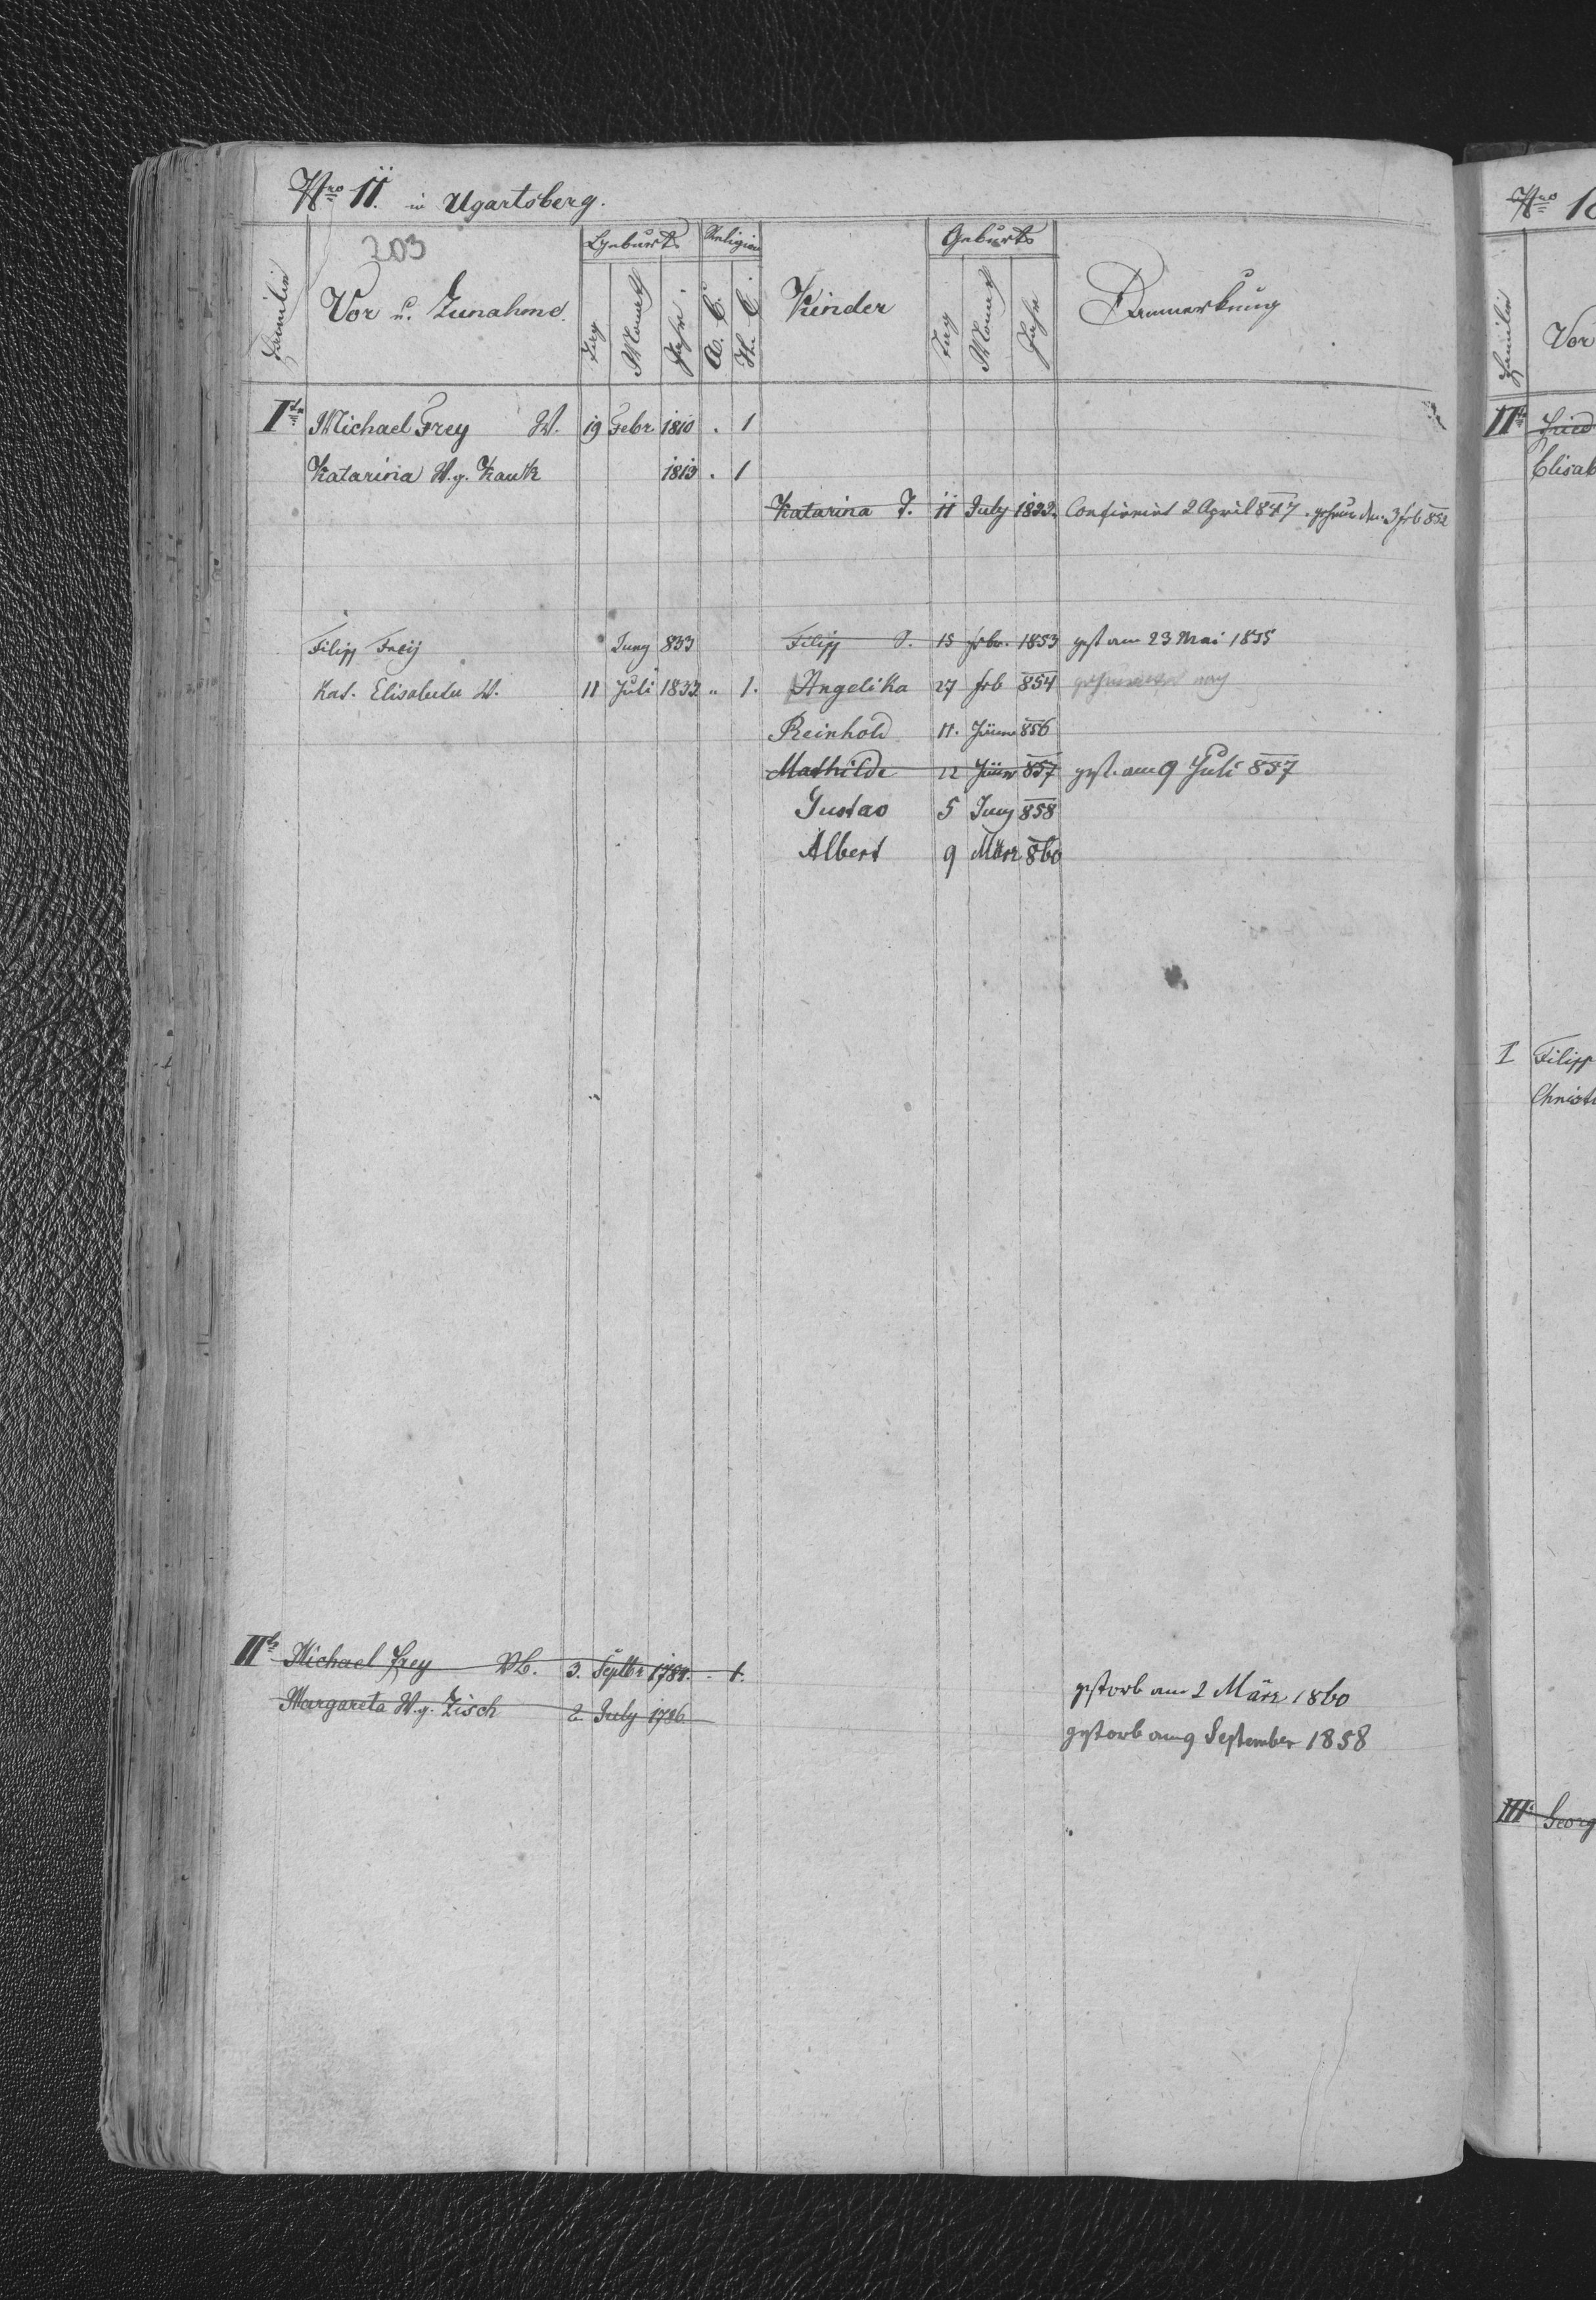 Nro 11. in Ugartsberg.
203
Familie
Vor u. Zunahme.
Geburts
Tag
Monat
Jahr
Religion
A. C.
H. C.
Kinder
Geburts
Tag
Monat
Jahr
Bemerkung
Ite Michael Frey W. 19 Febr. 1810 . 1
Katarina W. g. Kauk 1813 . 1
Katarina T. 11 July 1832. Confirmirt 2 April 847. den 3 feb 852
Filipp Frey Juny 833 Filipp S. 15 feb. 1853 gest am 23 Mai 1855
Kat. Elisabeta W. 11 Juli 1832 " 1. Angelika 27 feb 854
Reinhold 11. 856
Mathilde 12 857 gest. am 9 Juli 857
Gustav 5 Juny 858
Albert 9 März 860
IIte Michael Frey Wb. 3. Septbr 1784. . 1.
gestorb am 2 März 1860
Margareta W. g. Zisch 2. July 1786
gestorb am 9 September 1858
Nro
Familie
Vor
II
Elisab
I Filipp
Christ
III. Georg